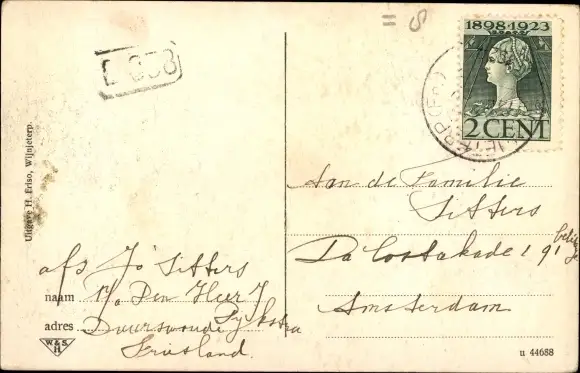 1898-1923
2 CENT
Uitgave H. Friso, Wijnjeterp.
Aan de Familie
Sitters
Da Costakade 191
Amsterdam
afz Jo Sitters
naam p/a Den Heer J
adres Duurswoude Dykstra
Friesland
W&S
H
u 44688